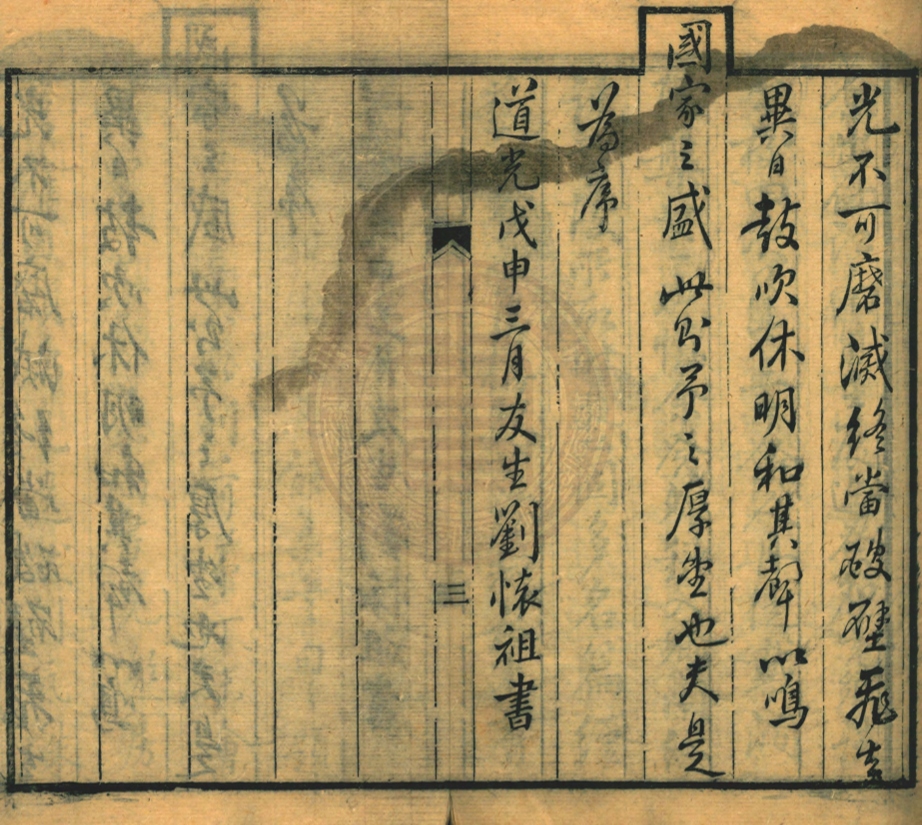 光不可磨滅終當破壁飛去
異日鼓吹休明和其聲以鳴
國家之盛此則予之厚望也夫是
為序
道光戊申三月友生劉懷祖書
三